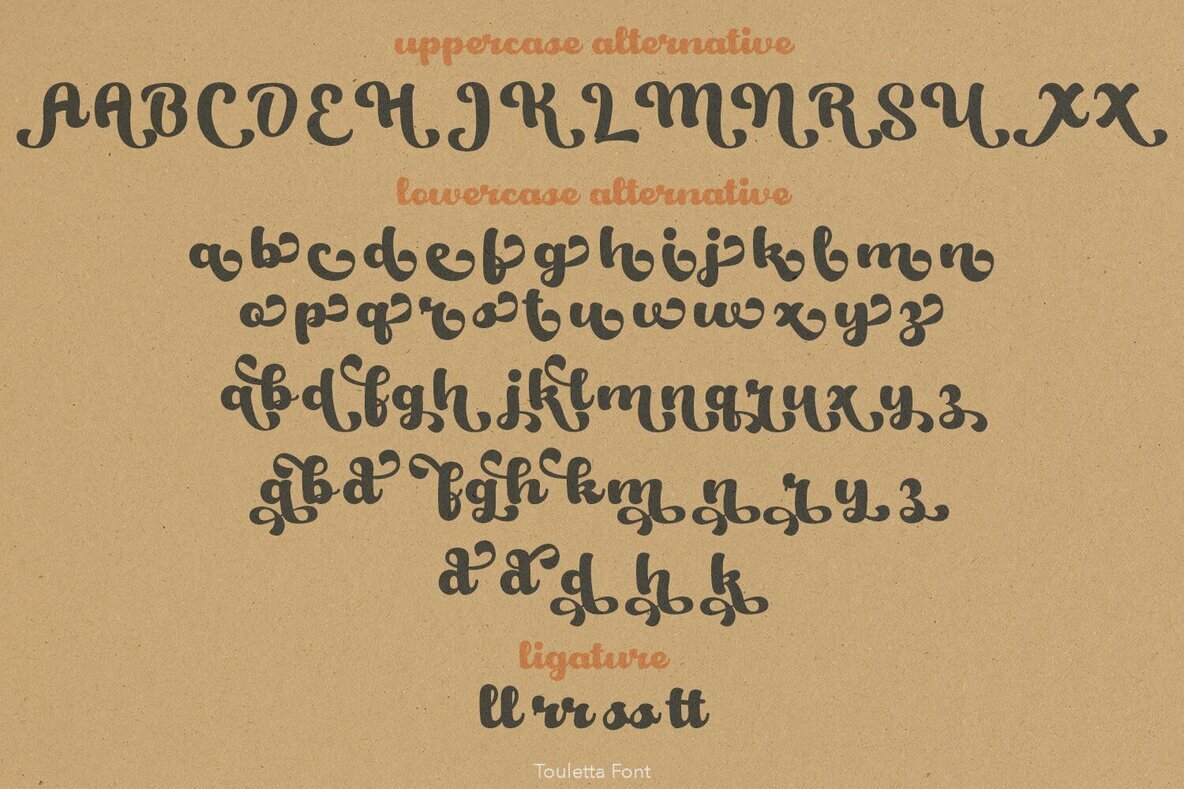 uppercase alternative
A A B C D E H J K L M N R S U X X
lowercase alternative
a b c d e f g h i j k l m n
o p q r s t u v w x y z
a b d f g h j k l m n q r u x y z
a b d f g h k m n r y z
d d d h k
ligature
ll rr ss tt
Touletta Font